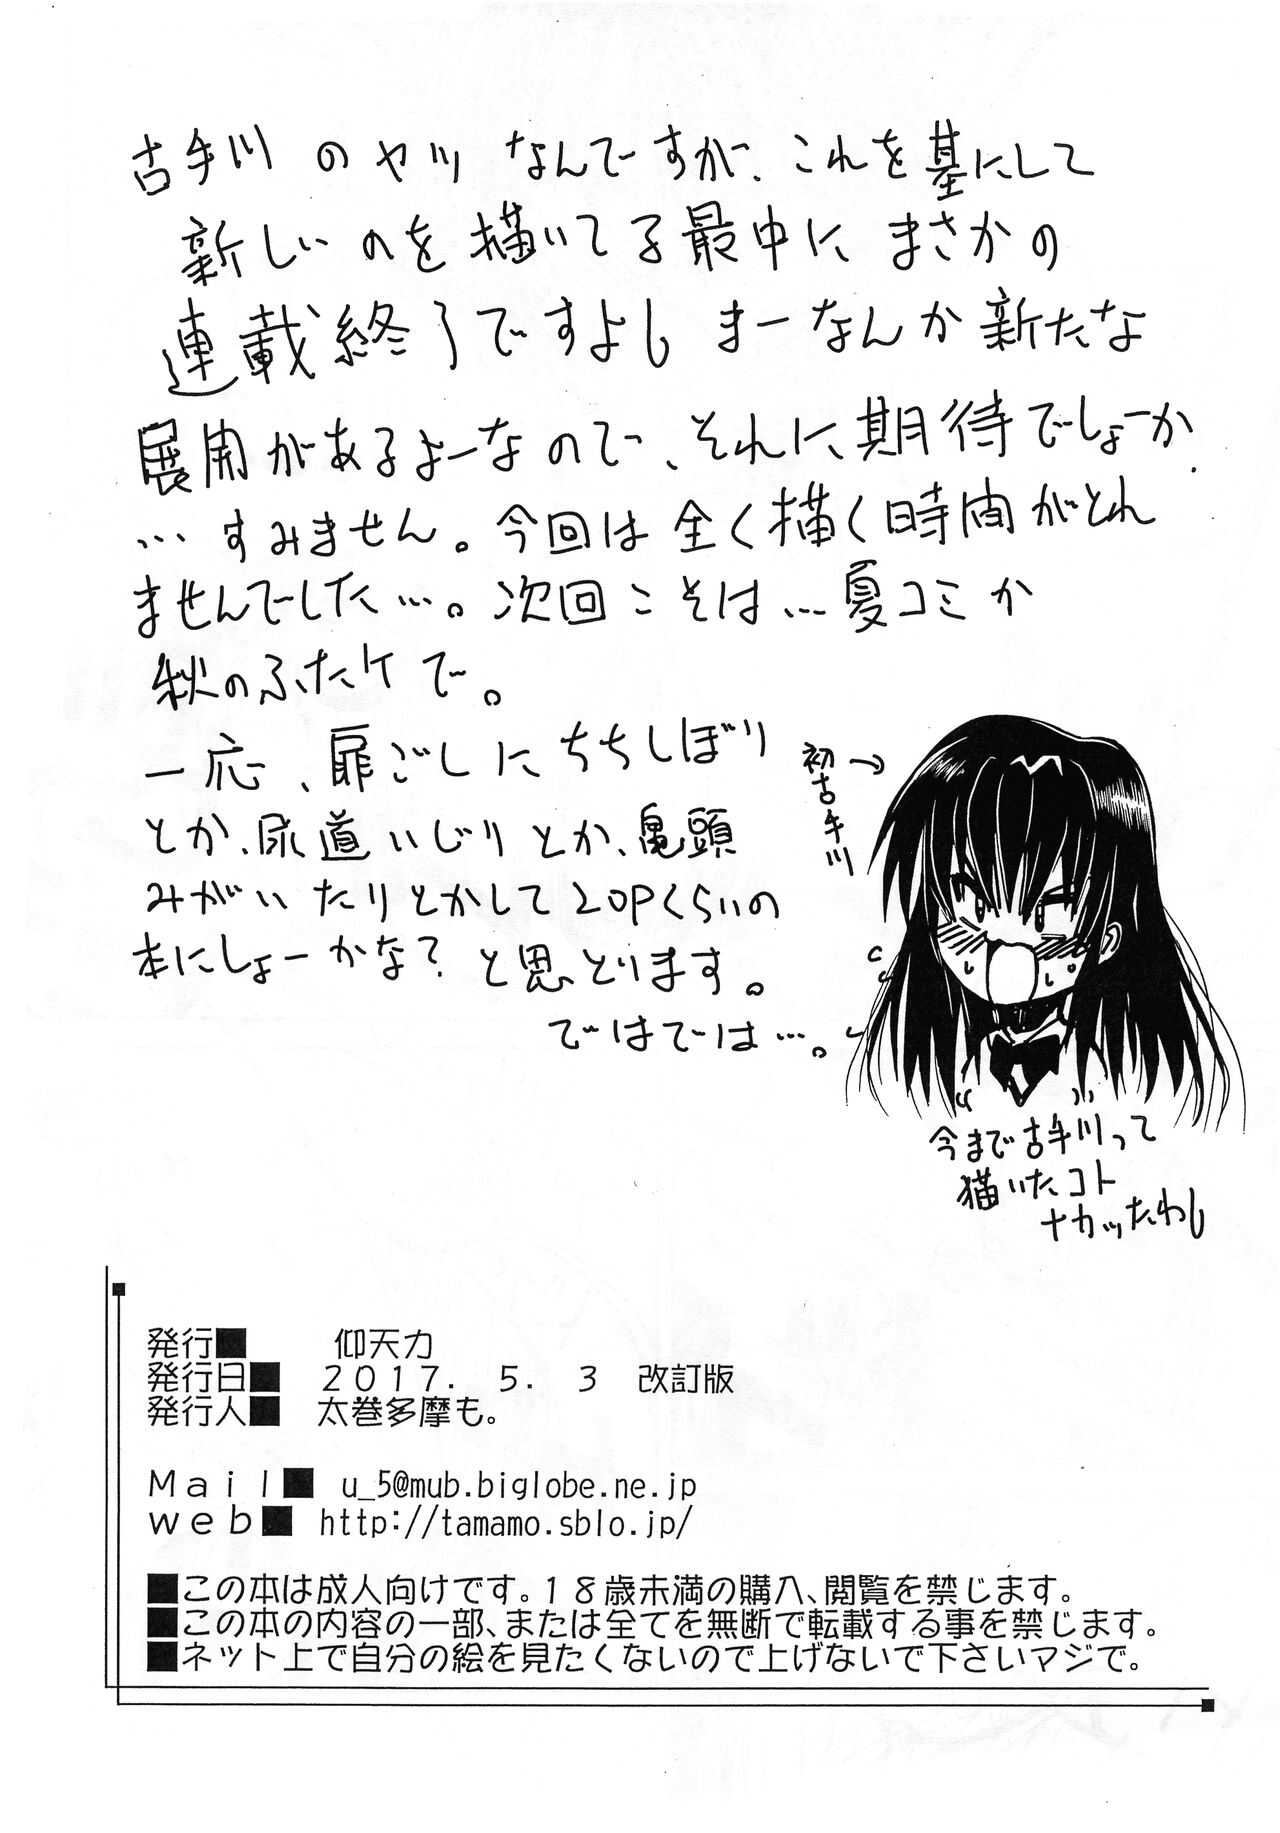 古手川のヤツなんですが、これを墓にして
新しいのを描いてる最中にまさかの
連載終了ですよし まーなんか新たな
展開があるよーなので、それに期待でしょーか.
…すみません。今回は全く描く時間がとれ
ませんでした…。次回こそは…夏コミか
秋のふたケで。
一応、扉ごしにちちしぼり
とか、尿道いじりとか、亀頭
みがいたりとかして20Pくらいの
本にしょーかな？と思っとります。
ではでは…。
初古手川→
今まで古手川って
描いたコト
ナカッたわし
発行■ 仰天力
発行日■ 2017. 5. 3 改訂版
発行人■ 太巻多摩も。
Mail■ u_5@mub.biglobe.ne.jp
web■ http://tamamo.sblo.jp/
■この本は成人向けです。18歳未満の購入、閲覧を禁じます。
■この本の内容の一部、または全てを無断で転載する事を禁じます。
■ネット上で自分の絵を見たくないので上げないで下さいマジで。